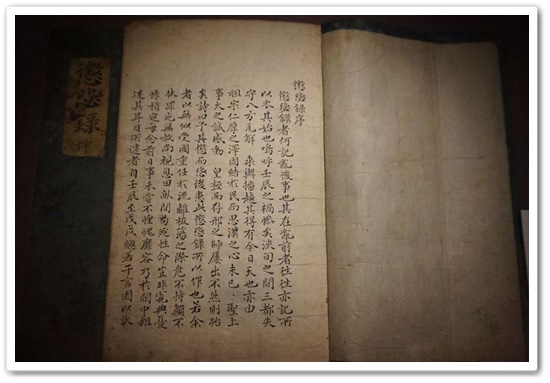 懲毖錄序
懲毖錄者何記亂後事也其在亂前者往往亦記所
以本其始也嗚呼壬辰之禍慘矣浹旬之間三都失
守八方瓦解 乘輿播越其得有今日天也亦由
祖宗仁厚之澤固結於民而思漢之心未已 聖上
事大之誠感動 皇極而存邢之師屢出不然則殆
矣詩曰予其懲而毖後患此懲毖錄所以作也若余
者以無似受國重任於流離板蕩之際危不持顚不
扶罪死無赦尚視息田畝間苟延性命豈非寬典憂
悸稍定每念前日事未嘗不惶愧靡容乃於閑中粗
述其耳目所逮者自壬辰至戊戌總若干言因以狀
懲毖錄 坤